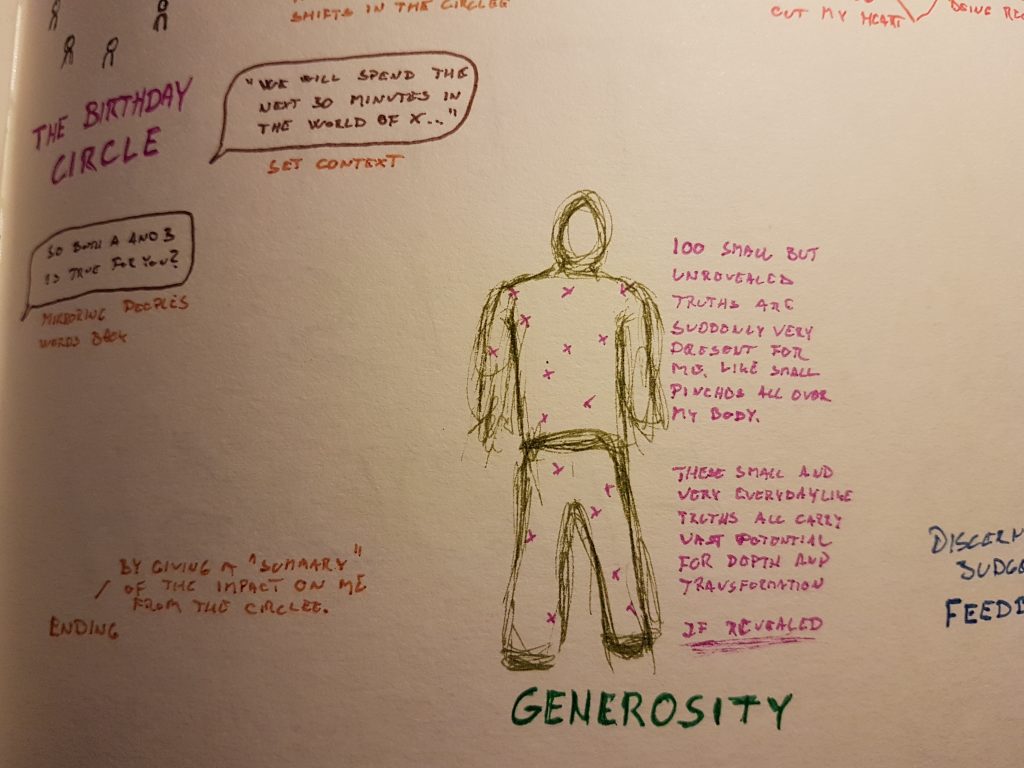 SHIFTS IN THE CIRCLEE
CUT MY HEART
BEING RE
THE BIRTHDAY
CIRCLE
"WE WILL SPEND THE
NEXT 30 MINUTES IN
THE WORLD OF X..."
SET CONTEXT
SO BOTH A AND B
IS TRUE FOR YOU?
MIRRORING PEOPLES
WORDS BACK
100 SMALL BUT
UNREVEALED
TRUTHS ARE
SUDDONLY VERY
PRESENT FOR
ME. LIKE SMALL
PINCHOS ALL OVER
MY BODY.
THESE SMALL AND
VERY EVERYDAYLIKE
TRUTHS ALL CARRY
VAST POTENTIAL
FOR DOPTH AND
TRANSFORMATION
IF REVEALED
BY GIVING A "SUMMARY"
/ OF THE IMPACT ON ME
FROM THE CIRCLEE.
ENDING
DISCERN
JUDGE
FEEDB
GENEROSITY